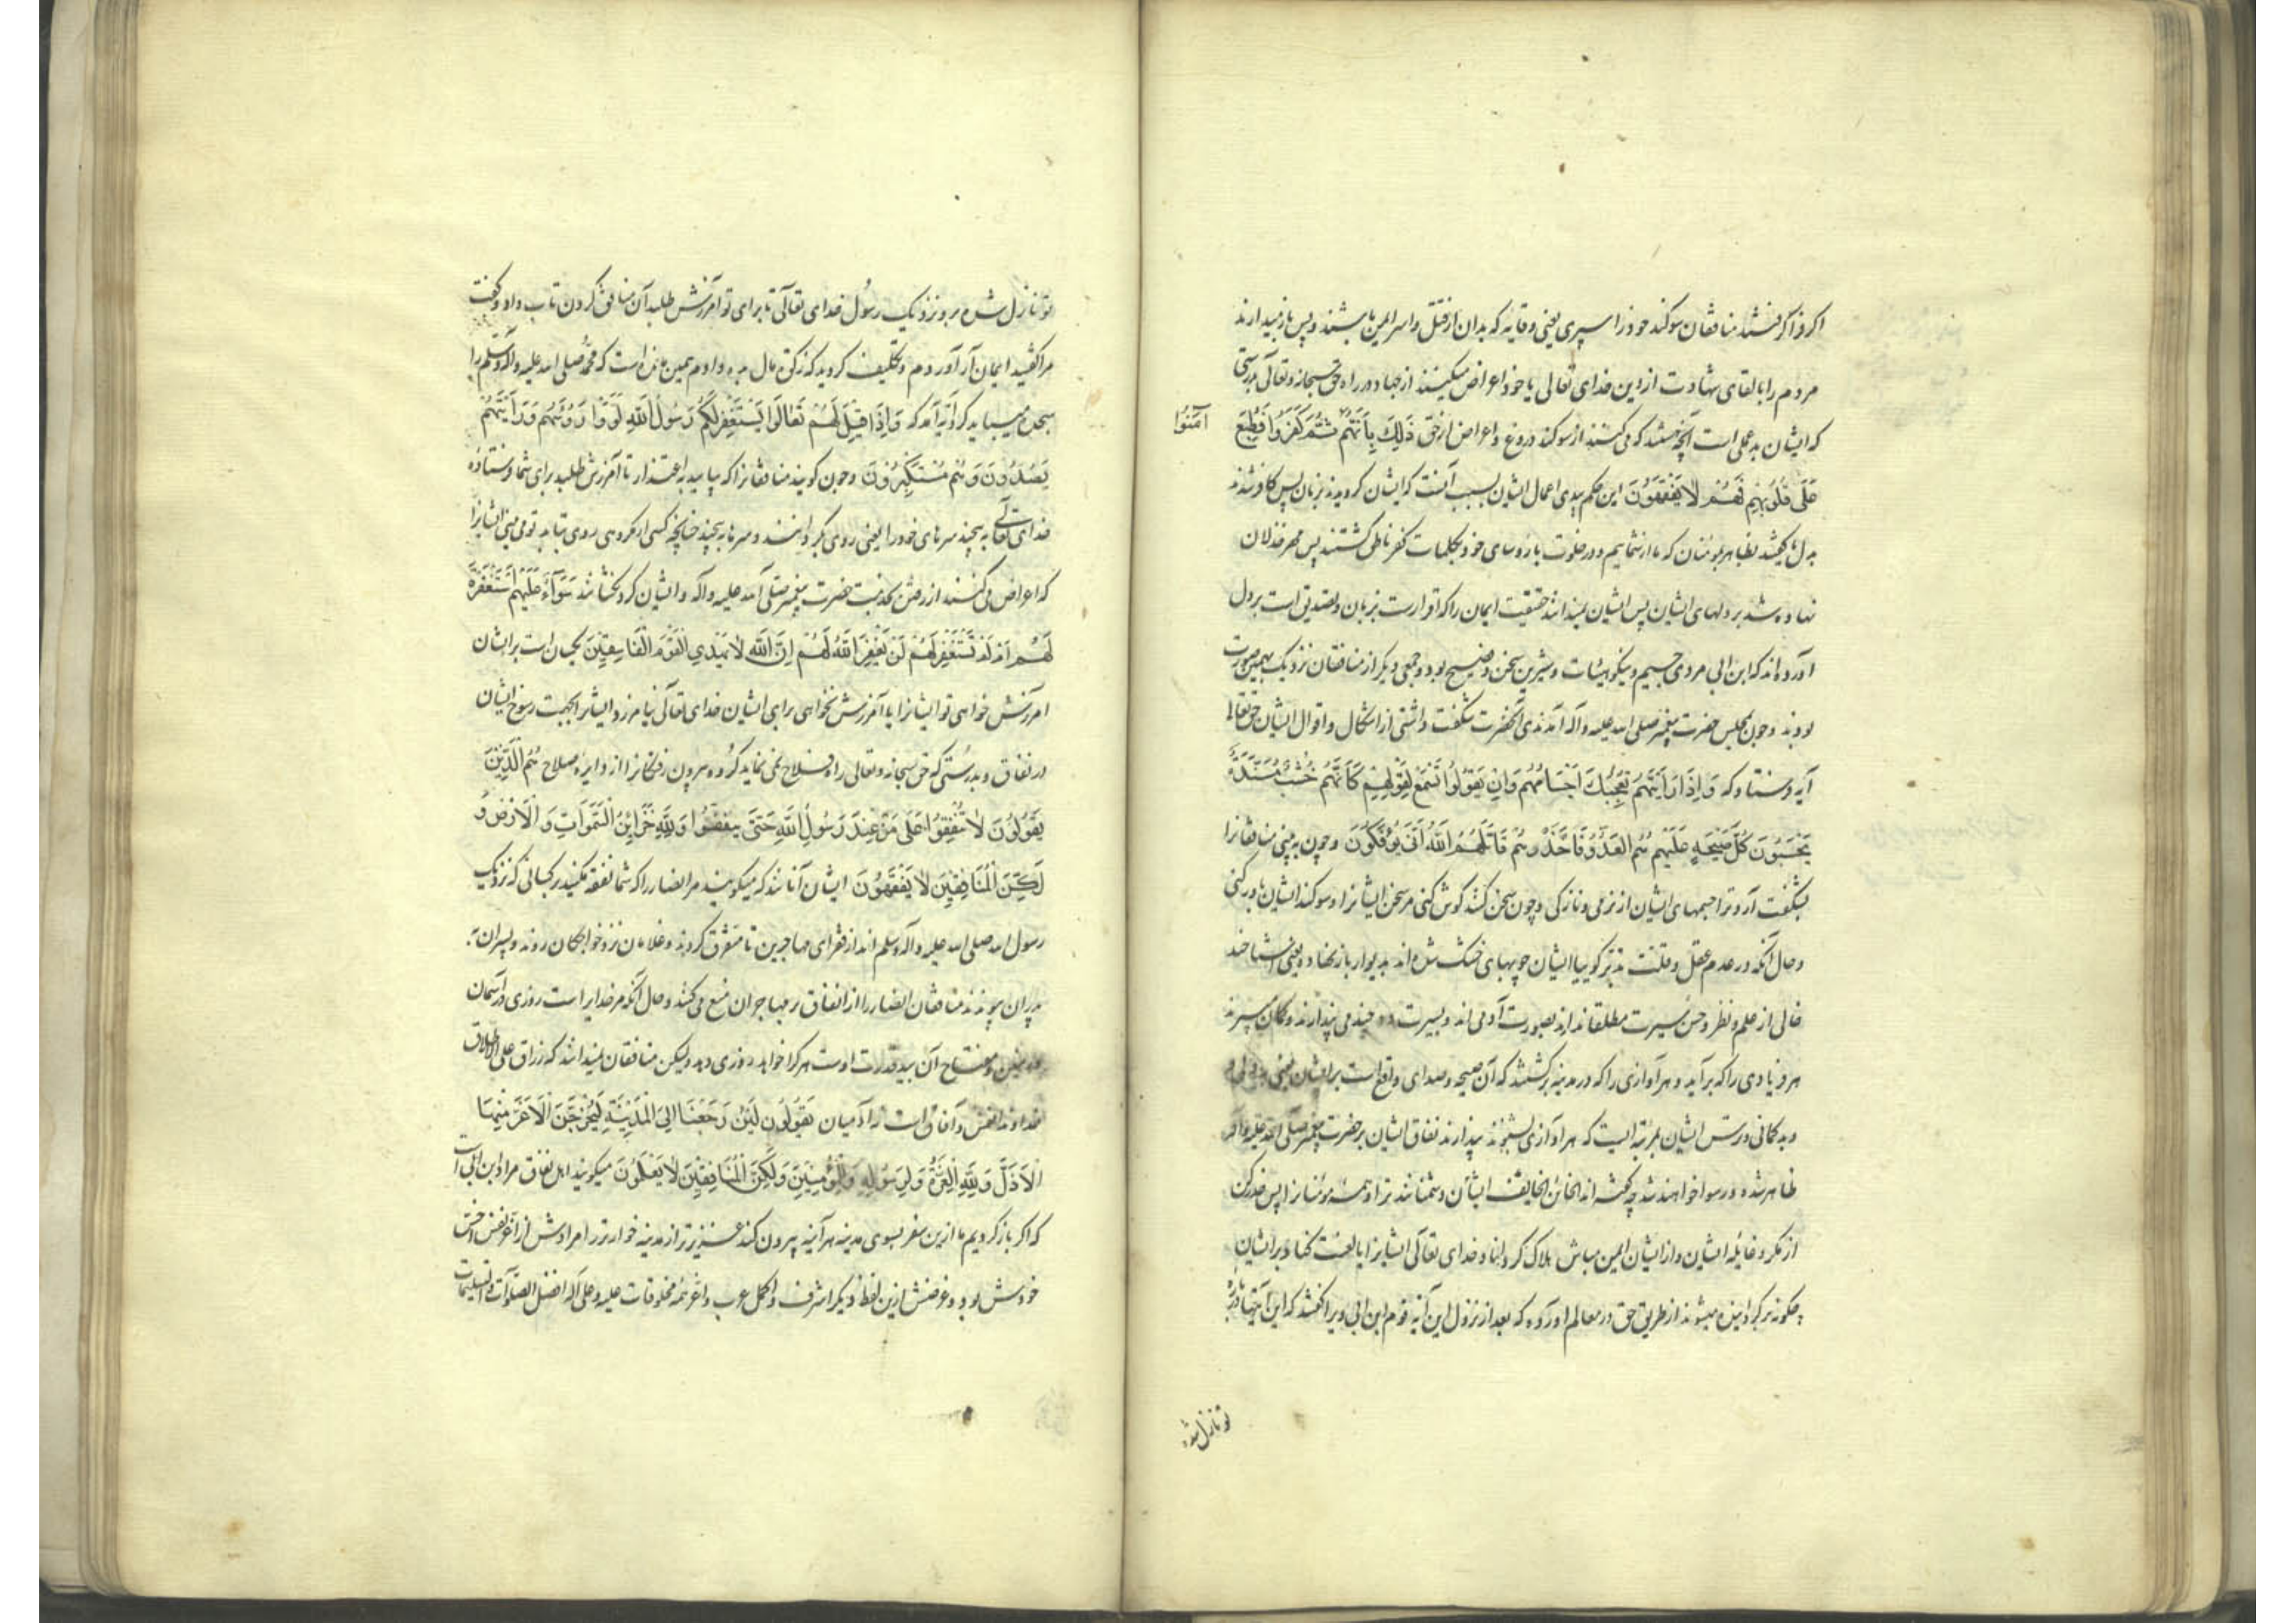 اکر فرا کرفتند منافقان سوکند خود را سپری یعنی وقایه که بدان از قتل و اسر ایمن باشند و پس باز میدارند
مردم را بالقای شهادت از دین خدای تعالی یا خود اعراض میکنند از جهاد در راه حق سبحانه و تعالی بدرستی
که ایشان بد عملی است آنچه هستند که می کنند از سوکند دروغ و اعراض از حق ذَلِكَ بِأَنَّهُمْ ثُمَّ كَفَرُوا فَطُبِعَ
آمَنُوا
عَلَى قُلُوبِهِمْ فَهُمْ لَا يَفْقَهُونَ این حکم ببدی اعمال ایشان بسبب آنست که ایشان کرویدند بزبان پس کافر شدند
بدل یا کفتند بظاهر بمومنان که ما از شماییم و در خلوت با رؤسای خود بکلمات کفر ناطق کشتند پس مهر خذلان
نهاده شد بر دلهای ایشان پس ایشان نمیدانند حقیقت ایمان را که اقرارست بزبان و تصدیق است بر دل
آورده اند که ابن ابی مردی جسیم و نیکو هیئات و شیرین سخن و فصیح بود و جمعی دیکر از منافقان نزدیک بهمین صورت
بودند و چون بمجلس حضرت پیغمبر صلی الله علیه و آله آمدندی آنحضرت شکفت داشتی از اشکال و اقوال ایشان حق تعالی
آیه فرستاد که وَإِذَا رَأَيْتَهُمْ تُعْجِبُكَ أَجْسَامُهُمْ وَإِنْ يَقُولُوا تَسْمَعْ لِقَوْلِهِمْ كَأَنَّهُمْ خُشُبٌ مُسَنَّدَةٌ
يَحْسَبُونَ كُلَّ صَيْحَةٍ عَلَيْهِمْ هُمُ الْعَدُوُّ فَاحْذَرْهُمْ قَاتَلَهُمُ اللَّهُ أَنَّى يُؤْفَكُونَ و چون به بینی منافقانرا
بشکفت آرد ترا جسمهای ایشان از نرمی و نازکی و چون سخن کنند کوش کنی مر سخن ایشانرا و سوکند ایشان باور کنی
و حال آنکه در عدم عقل و قلت تدبر کوییا ایشان چوبهای خشک شده اند بدیوار باز نهاده یعنی اشباحند
خالی از علم و نظر و حسن سیرت مطلقا ندارند بصورت آدمی اند و بسیرت می پندارند و کمان میبرند
هر فریادی را که برآید و هر آوازی را که در مدینه برکشند که آن صیحه و صدای واقع است بر ایشان یعنی
و بد کمانی و ترس ایشان بمرتبه ایست که هر آوازی بشنوند پندارند نفاق ایشان بر حضرت پیغمبر صلی الله علیه و آله
ظاهر شده و رسوا خواهند شد چه کفته اند الخائن الخایف ایشان دشمنانند ترا و همه مومنانرا پس حذر کن
از مکر و غایله ایشان و از ایشان ایمن مباش هلاک کرداناد خدای تعالی ایشانرا یا لعنت کناد بر ایشان
چکونه بر کردانیده میشوند از طریق حق در معالم آورده که بعد از نزول این آیه قوم ابن ابی ویرا کفتند که این آیتها در باره
تو نازل شده
تو نازل شده برو نزدیک رسول خدای تعالی تا برای تو آمرزش طلبد آن منافق کردن تاب داد و کفت
مرا کفتید ایمان آر آوردم و تکلیف کردید که زکوة مال بده دادم همین مانده است که محمد صلی الله علیه و آله و سلم را
سجده میباید کرد آیه آمد که وَإِذَا قِيلَ لَهُمْ تَعَالَوْا يَسْتَغْفِرْ لَكُمْ رَسُولُ اللَّهِ لَوَّوْا رُءُوسَهُمْ وَرَأَيْتَهُمْ
يَصُدُّونَ وَهُمْ مُسْتَكْبِرُونَ و چون کویند منافقانرا که بیایید به اعتذار تا آمرزش طلبد برای شما فرستاده
خدای تعالی به پیچند سرهای خود را یعنی روی بکردانند و سرها به پیچند چنانچه کسی از مکروهی روی بتابد تو می بینی ایشانرا
که اعراض می کنند از رفتن بخدمت حضرت پیغمبر صلی الله علیه و آله و ایشان کردنکشانند سَوَاءٌ عَلَيْهِمْ أَسْتَغْفَرْتَ
لَهُمْ أَمْ لَمْ تَسْتَغْفِرْ لَهُمْ لَنْ يَغْفِرَ اللَّهُ لَهُمْ إِنَّ اللَّهَ لَا يَهْدِي الْقَوْمَ الْفَاسِقِينَ یکسان است بر ایشان
آمرزش خواهی تو ایشانرا یا آمرزش نخواهی برای ایشان خدای تعالی نیامرزد ایشانرا بجهت رسوخ ایشان
در نفاق و بدرستی که حق سبحانه و تعالی راه فلاح نمی نماید کروه بیرون رفتکانرا از دایره صلاح هُمُ الَّذِينَ
يَقُولُونَ لَا تُنْفِقُوا عَلَى مَنْ عِنْدَ رَسُولِ اللَّهِ حَتَّى يَنْفَضُّوا وَلِلَّهِ خَزَائِنُ السَّمَوَاتِ وَالْأَرْضِ وَ
لَكِنَّ الْمُنَافِقِينَ لَا يَفْقَهُونَ ایشان آنانند که میکویند مر انصار را که شما نفقه مکنید بر کسانی که نزدیک
رسول الله صلی الله علیه و آله و سلم اند از فقرای مهاجرین تا متفرق کردند و غلامان نزد خواجکان روند و پسران به
پدران پیوندند منافقان انصار را از انفاق بر مهاجران منع می کنند و حال آنکه مر خدایراست روزی در آسمان
و زمین و مفتاح آن بید قدرت اوست هر کرا خواهد روزی دهد ولیکن منافقان نمیدانند که رزاق علی الاطلاق
خداوند انفس و آفاق است نه آدمیان يَقُولُونَ لَئِنْ رَجَعْنَا إِلَى الْمَدِينَةِ لَيُخْرِجَنَّ الْأَعَزُّ مِنْهَا
الْأَذَلَّ وَلِلَّهِ الْعِزَّةُ وَلِرَسُولِهِ وَلِلْمُؤْمِنِينَ وَلَكِنَّ الْمُنَافِقِينَ لَا يَعْلَمُونَ میکویند اهل نفاق مراد ابن ابی است
که اکر باز کردیم ما ازین سفر بسوی مدینه هر آینه بیرون کند عزیزتر از مدینه خوارتر را مرادش از اعز نفس اخس
خودش بود و غرضش ازین لفظ دیکر اشرف و اکمل عرب و اعز همه مخلوقات علیه و علی آله افضل الصلوات و التسلیمات